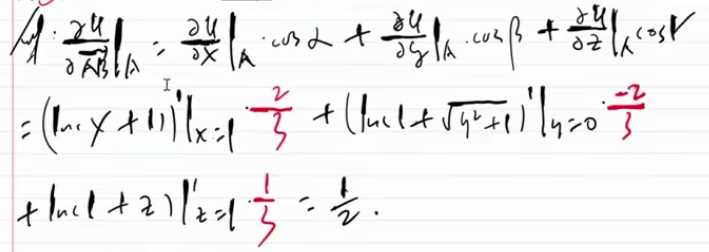 则: ∂u/∂AB|_A = ∂u/∂x|_A · cosα + ∂u/∂y|_A · cosβ + ∂u/∂z|_A cosγ
= (ln(x+1))'|_{x=1} · 2/3 + (ln(1+√(y²+1))'|_{y=0} · -2/3
+ ln(1+z)|'_{z=1} · 1/3 = 1/2.